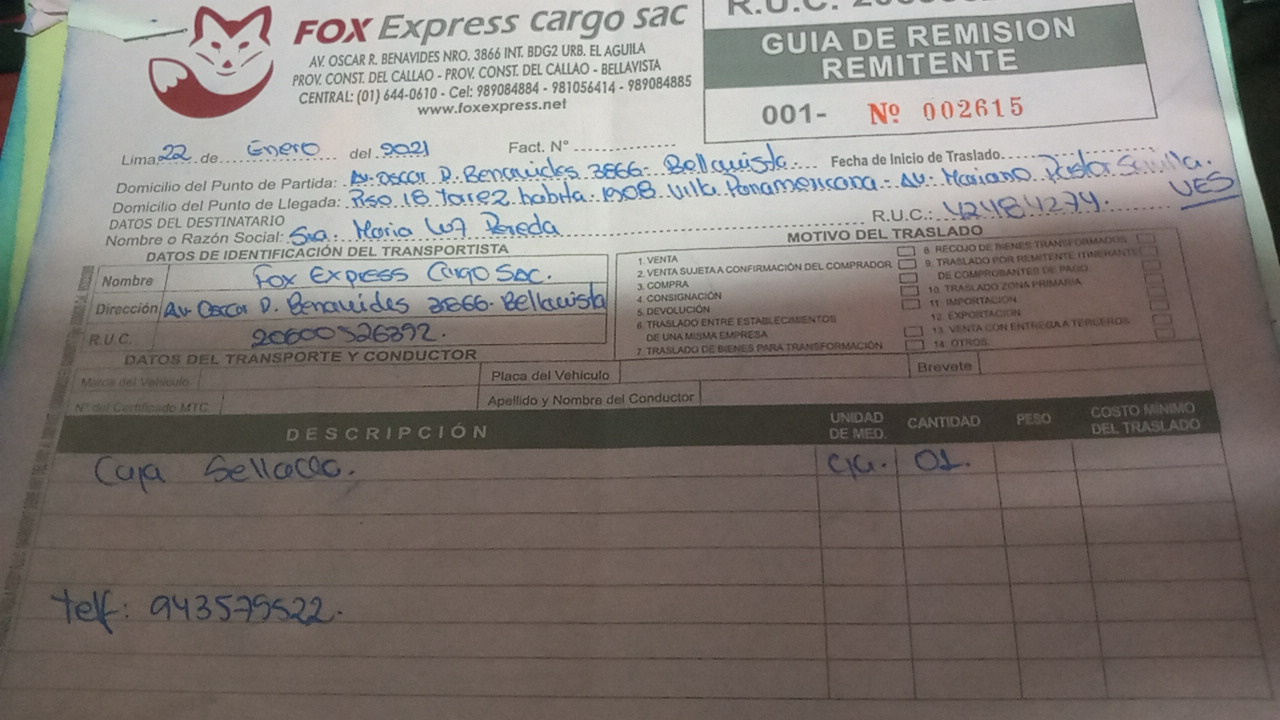 FOX Express cargo sac
AV. OSCAR R. BENAVIDES NRO. 3866 INT. BDG2 URB. EL AGUILA
PROV. CONST. DEL CALLAO - PROV. CONST. DEL CALLAO - BELLAVISTA
CENTRAL: (01) 644-0610 - Cel: 989084884 - 981056414 - 989084885
www.foxexpress.net
R.U.C.
GUIA DE REMISION
REMITENTE
001- Nº 002615
Lima, 22 de Enero del 2021 Fact. N°
Domicilio del Punto de Partida: Av. Oscar D. Benavides 3866 - Bellavista. Fecha de Inicio de Traslado
Domicilio del Punto de Llegada: Piso 18 Torre 2 habita. 1908 Villa Panamericana - Av. Mariano Pastor Sevilla. VES
DATOS DEL DESTINATARIO
Nombre o Razón Social: Sra: Maria Luz Pereda R.U.C.: 42484274.
DATOS DE IDENTIFICACIÓN DEL TRANSPORTISTA
Nombre Fox Express Cargo SAC.
Dirección Av. Oscar D. Benavides 3866. Bellavista
R.U.C. 20600526392.
MOTIVO DEL TRASLADO
1. VENTA
2. VENTA SUJETA A CONFIRMACIÓN DEL COMPRADOR
3. COMPRA
4. CONSIGNACIÓN
5. DEVOLUCIÓN
6. TRASLADO ENTRE ESTABLECIMIENTOS
DE UNA MISMA EMPRESA
7. TRASLADO DE BIENES PARA TRANSFORMACIÓN
8 RECOJO DE BIENES TRANSFORMADOS
9. TRASLADO POR REMITENTE ITINERANTE
DE COMPROBANTES DE PAGO
10. TRASLADO ZONA PRIMARIA
11. IMPORTACION
12. EXPORTACION
13. VENTA CON ENTREGA A TERCEROS
14. OTROS
DATOS DEL TRANSPORTE Y CONDUCTOR
Marca del Vehículo Placa del Vehículo Brevete
N° del Certificado MTC. Apellido y Nombre del Conductor
DESCRIPCIÓN UNIDAD DE MED. CANTIDAD PESO COSTO MÍNIMO DEL TRASLADO
Caja Sellada. 01.
telf: 943579522.